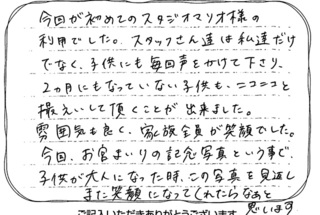 今回が初めてのスタジオマリオ様の
利用でした。スタッフさん達は私達だけ
でなく、子供にも毎回声をかけて下さり、
2ヵ月にもなっていない子供も、ニコニコと
撮えいして頂くことが出来ました。
雰囲気も良く、家族全員が笑顔でした。
今回、お宮まいりの記念写真という事で、
子供が大人になった時、この写真を見返し
また笑顔になってくれたらなぁと
思います
ご記入いただきありがとうございます